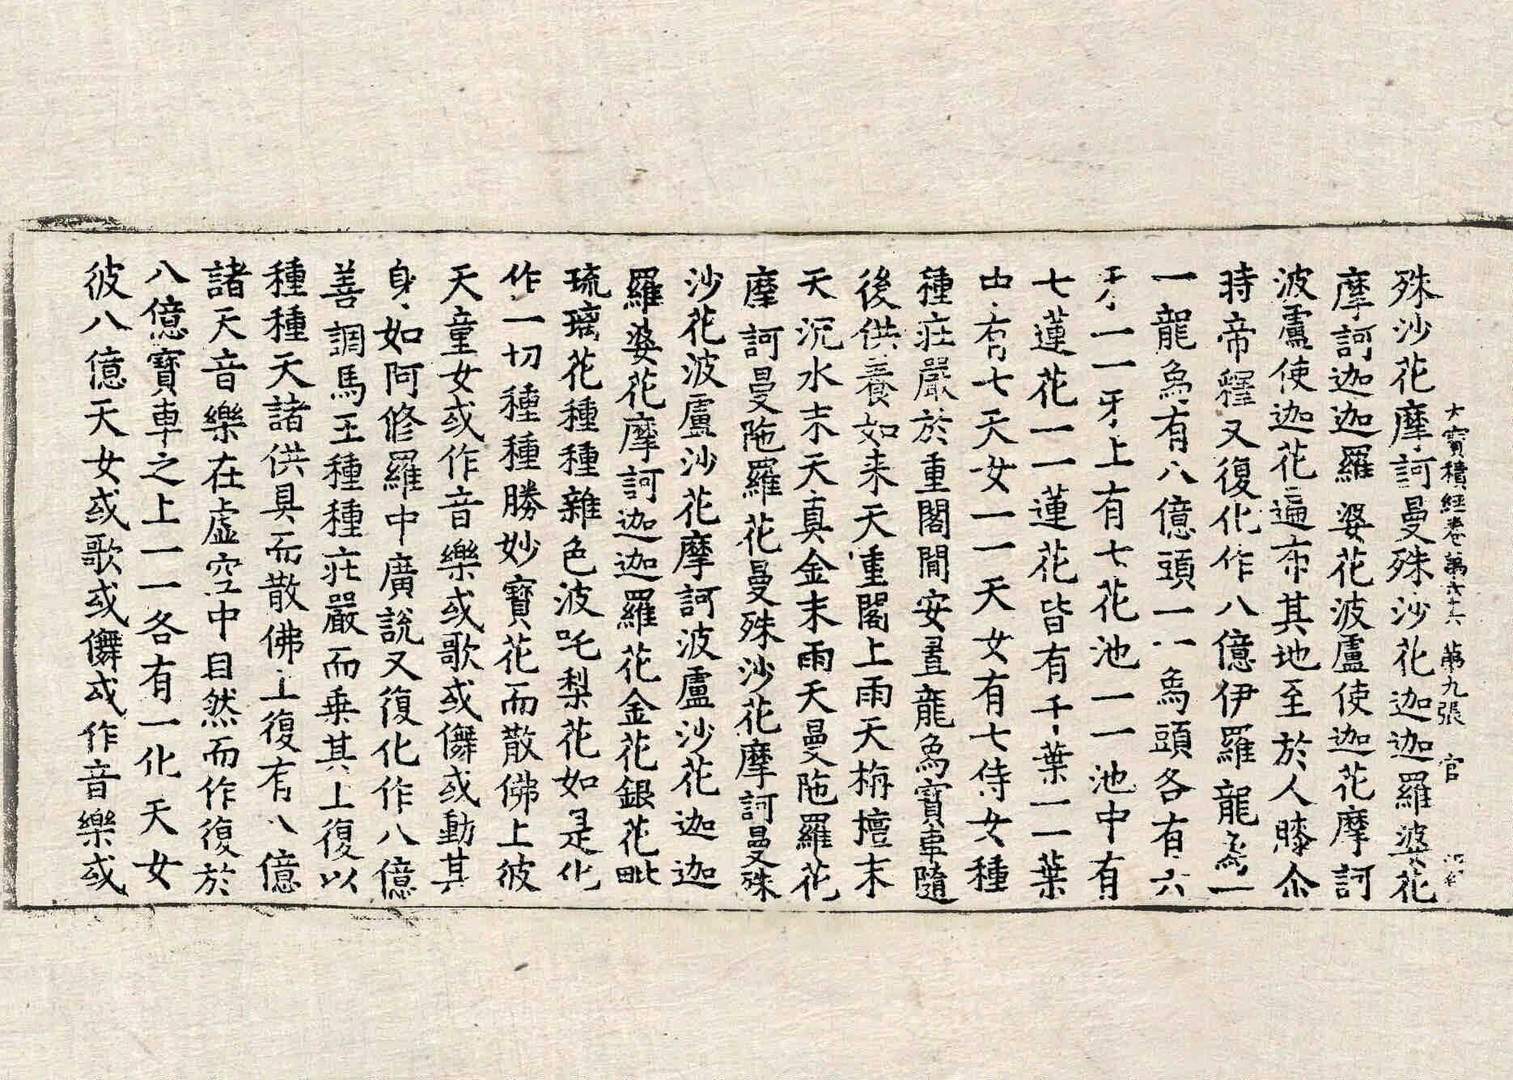 大寶積經卷第六十六 第九張 官
殊沙花摩訶曼殊沙花迦迦羅婆花
摩訶迦迦羅婆花波盧使迦花摩訶
波盧使迦花遍布其地至於人膝尒
時帝釋又復化作八億伊羅龍象一
一龍象有八億頭一一象頭各有六
牙一一牙上有七花池一一池中有
七蓮花一一蓮花皆有千葉一一葉
中有七天女一一天女有七侍女種
種莊嚴於重閣間安置龍象寶車隨
後供養如来天重閣上雨天栴檀末
天沉水末天真金末雨天曼陁羅花
摩訶曼陁羅花曼殊沙花摩訶曼殊
沙花波盧沙花摩訶波盧沙花迦迦
羅婆花摩訶迦迦羅花金花銀花毗
琉璃花種種雜色波吒梨花如是化
作一切種種勝妙寶花而散佛上彼
天童女或作音樂或歌或儛或動其
身如阿修羅中廣說又復化作八億
善調馬王種種莊嚴而乗其上復以
種種天諸供具而散佛上復有八億
諸天音樂在虛空中自然而作復於
八億寶車之上一一各有一化天女
彼八億天女或歌或儛或作音樂或